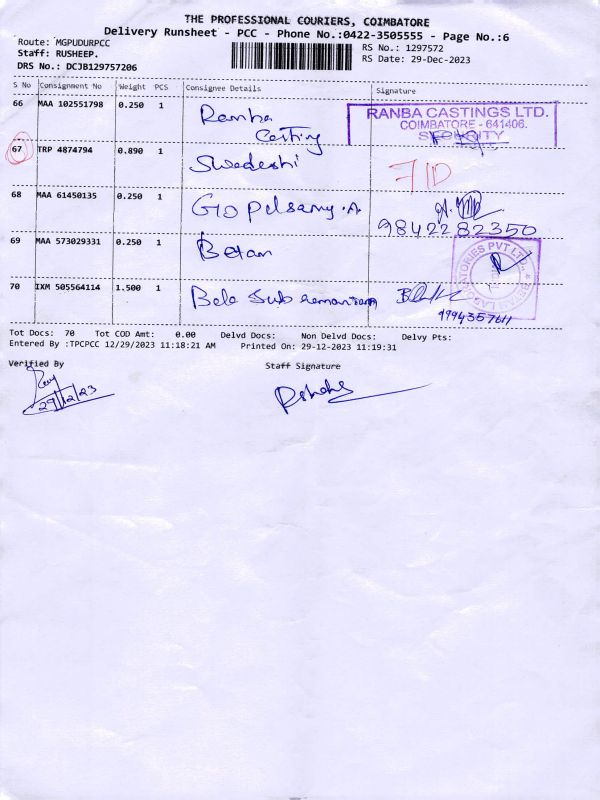 THE PROFESSIONAL COURIERS, COIMBATORE
Delivery Runsheet - PCC - Phone No.:0422-3505555 - Page No.:6
Route: MGPUDURPCC
Staff: RUSHEEP.
DRS No.: DCJB129757206
RS No.: 1297572
RS Date: 29-Dec-2023
S No Consignment No Weight PCS Consignee Details Signature
66 MAA 102551798 0.250 1 Ramba Casting
RANBA CASTINGS LTD.
COIMBATORE - 641406.
SECURITY
67 TRP 4874794 0.890 1 Swedeshi
68 MAA 61450135 0.250 1 Gopalsamy.A
9842282350
69 MAA 573029331 0.250 1
70 IXM 505564114 1.500 1 Bala Subramaniam
Tot Docs: 70 Tot COD Amt: 0.00 Delvd Docs: Non Delvd Docs: Delvy Pts:
Entered By :TPCPCC 12/29/2023 11:18:21 AM Printed On: 29-12-2023 11:19:31
Verified By Staff Signature
29/12/23